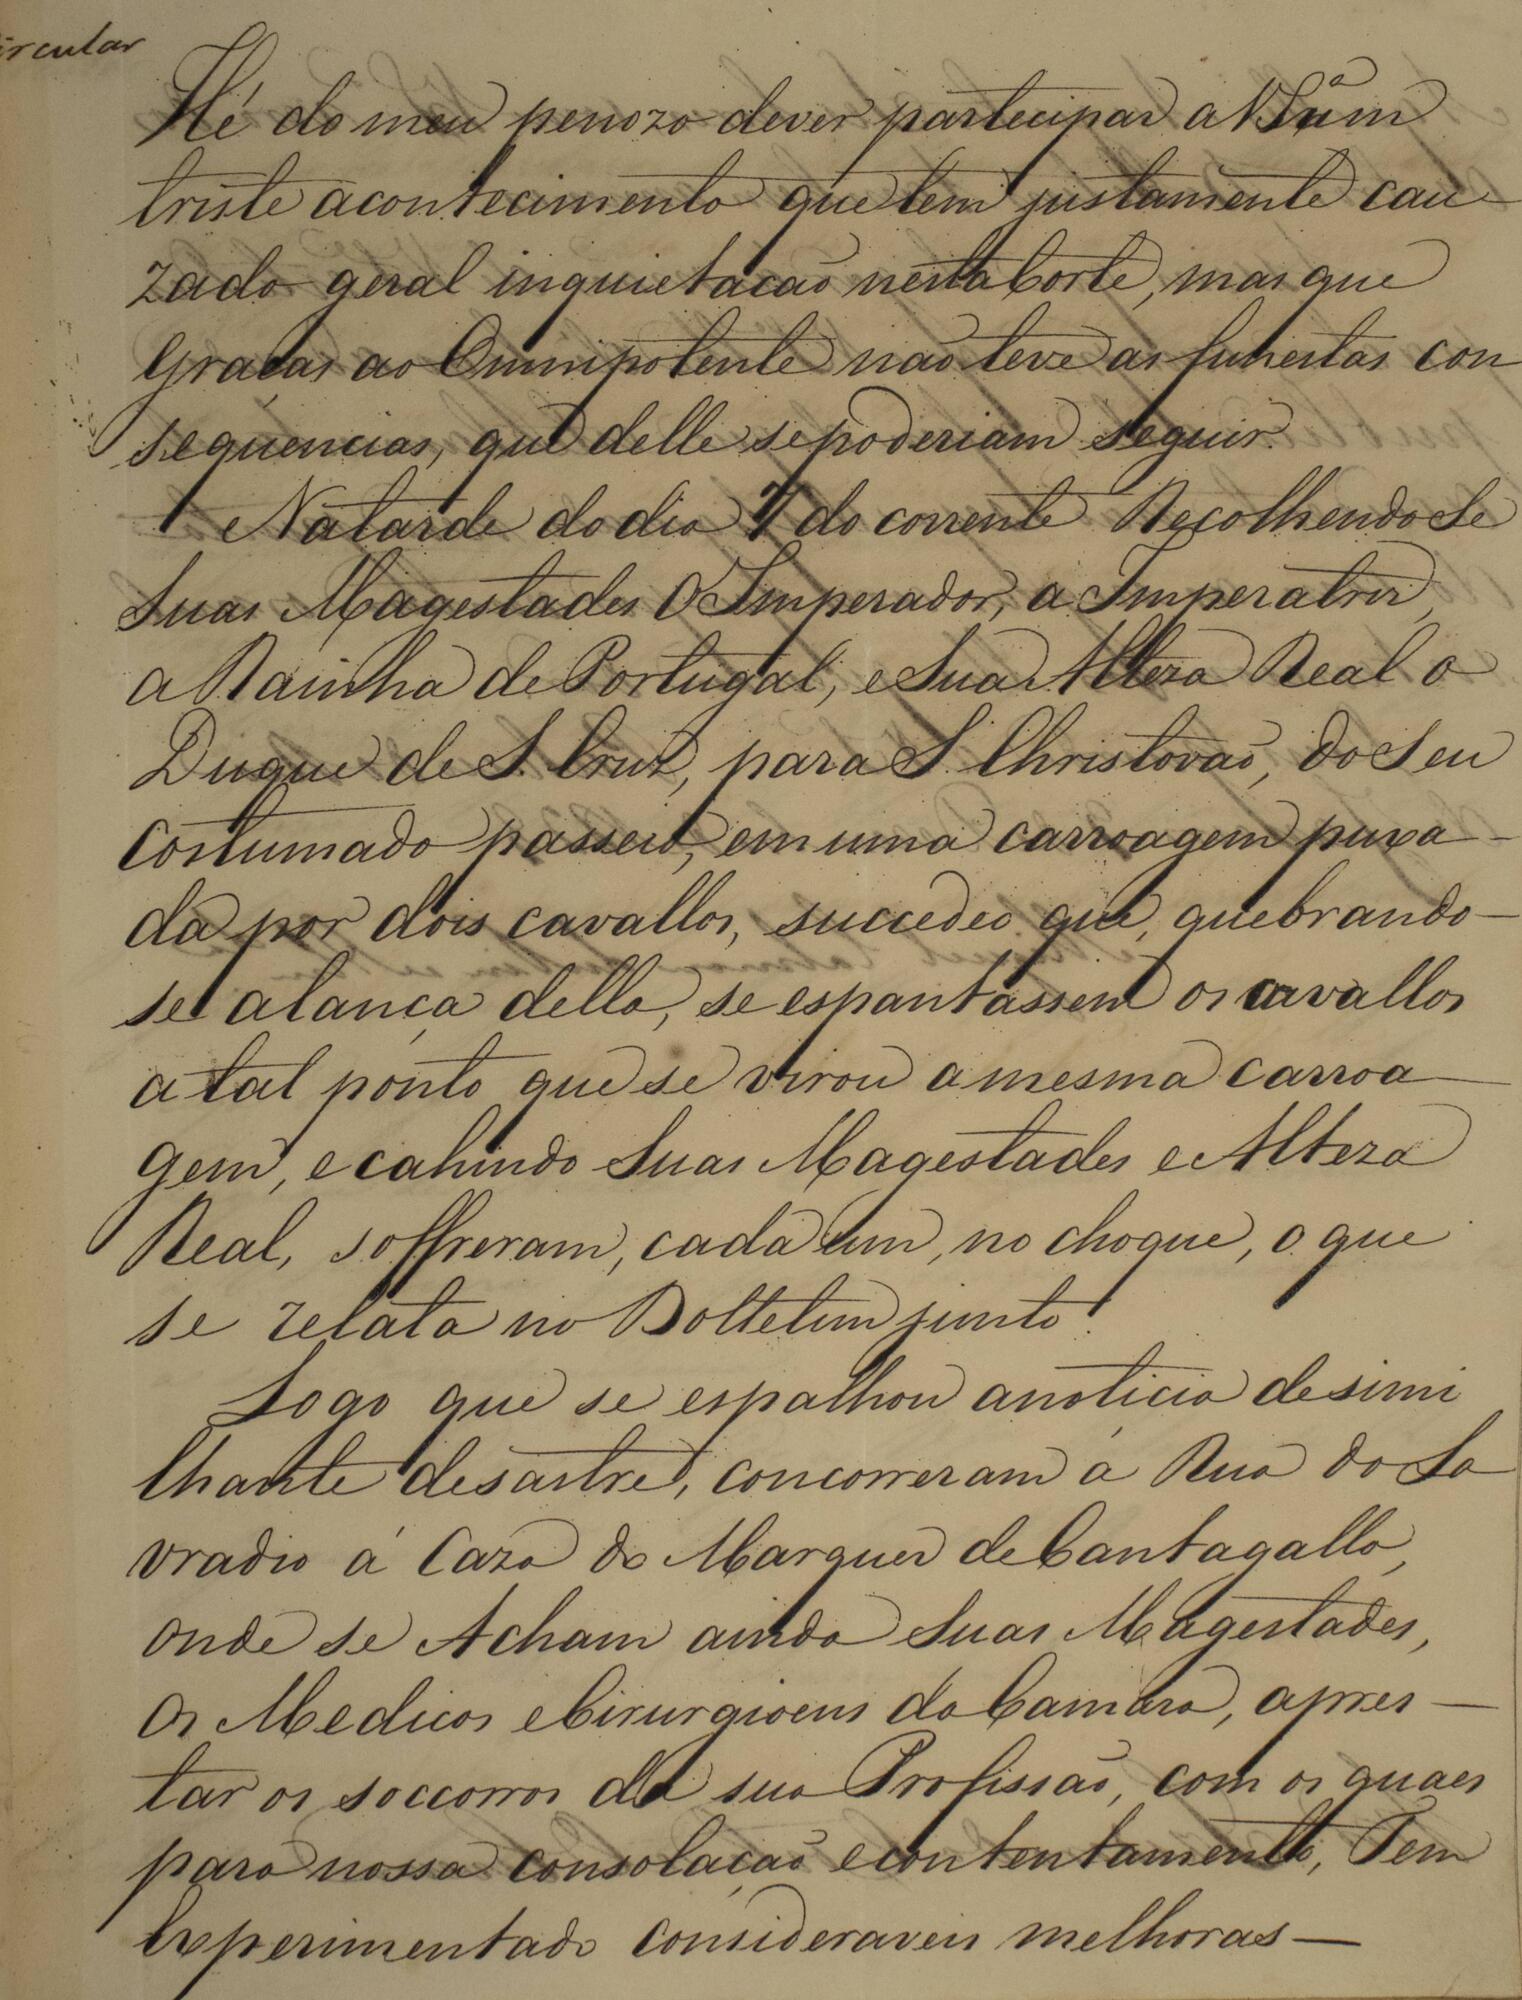 ircular
Hé do meu penozo dever participar a VSª um
triste acontecimento que tem justamente cau-
zado geral inquietacaõ nesta Corte, mas que
Graças ao Omnipotente naõ teve as funestas con
sequencias, que delle se poderiam seguir.
Na tarde do dia 7 do corrente Recolhendo Se
Suas Magestades O Imperador, a Imperatriz,
a Rainha de Portugal, e Sua Alteza Real o
Duque de S. Cruz, para S. Christovaõ, do Seu
Costumado passeio, em uma carroagem puxa-
da por dois cavallos, succedeo que, quebrando-
se a lança della, se espantassem os cavallos
a tal ponto que se virou a mesma carroa-
gem, e cahindo Suas Magestades e Alteza
Real, soffreram, cada um, no choque, o que
se relata no Bolletim junto.
Logo que se espalhou a noticia de simi
lhante desastre, concorreram á Rua do La
vradio á Caza do Marquez de Cantagallo,
onde se Acham ainda Suas Magestades,
Os Medicos e Cirurgioens da Camara, apres-
tar os soccorros da sua Profissaõ, com os quaes
para nossa consolaçaõ e contentamento, Tem
Experimentado consideraveis melhoras—